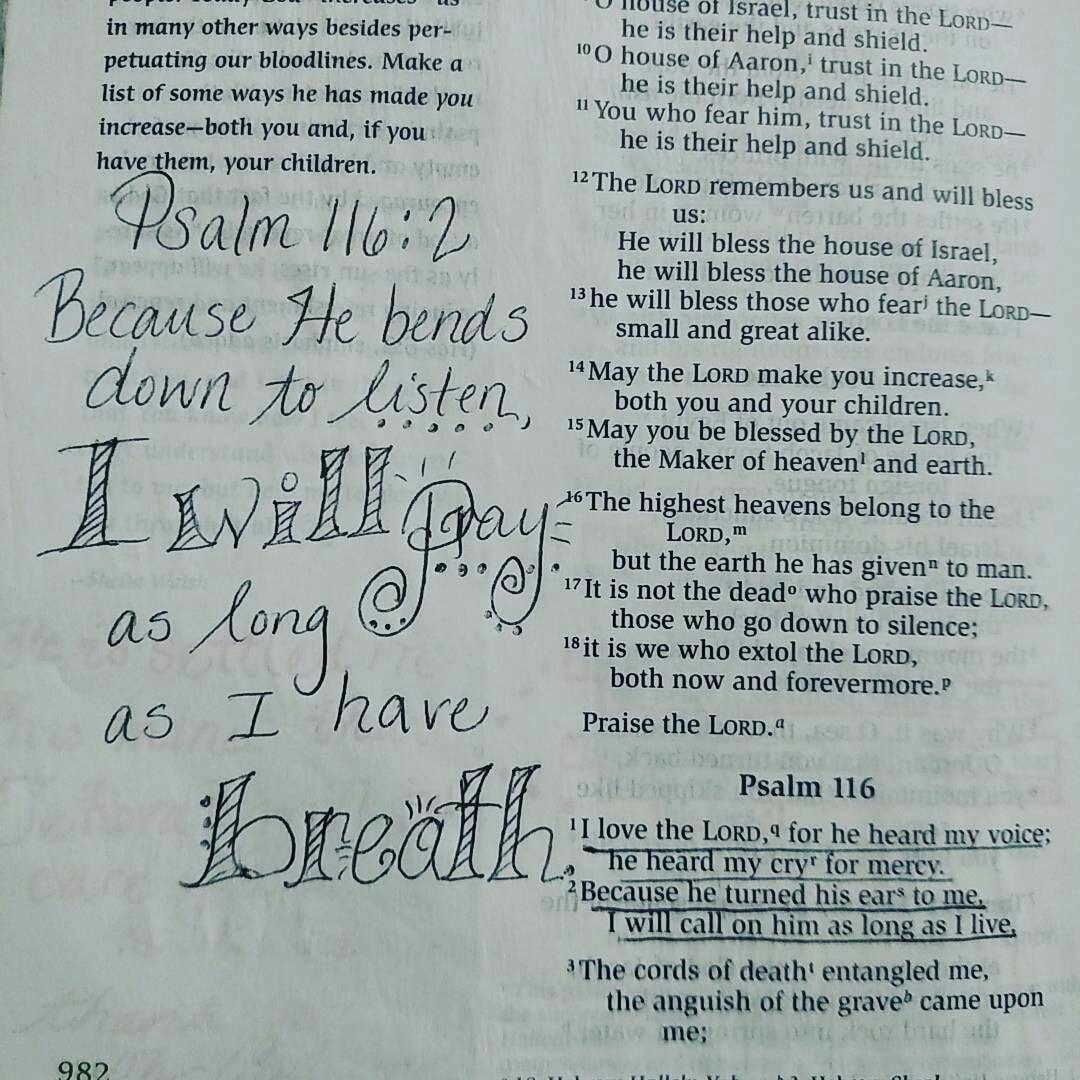 in many other ways besides per-
petuating our bloodlines. Make a
list of some ways he has made you
increase—both you and, if you
have them, your children.
Psalm 116:2
Because He bends
down to listen,
I will pray
as long
as I have
breath.
982
O house of Israel, trust in the LORD—
he is their help and shield.
10 O house of Aaron,i trust in the LORD—
he is their help and shield.
11 You who fear him, trust in the LORD—
he is their help and shield.
12 The LORD remembers us and will bless
us:
He will bless the house of Israel,
he will bless the house of Aaron,
13 he will bless those who fearj the LORD—
small and great alike.
14 May the LORD make you increase,k
both you and your children.
15 May you be blessed by the LORD,
the Maker of heavenl and earth.
16 The highest heavens belong to the
LORD,m
but the earth he has givenn to man.
17 It is not the deado who praise the LORD,
those who go down to silence;
18 it is we who extol the LORD,
both now and forevermore.p
Praise the LORD.q
Psalm 116
1 I love the LORD,q for he heard my voice;
he heard my cryr for mercy.
2 Because he turned his ears to me,
I will call on him as long as I live.
3 The cords of deatht entangled me,
the anguish of the graveb came upon
me;